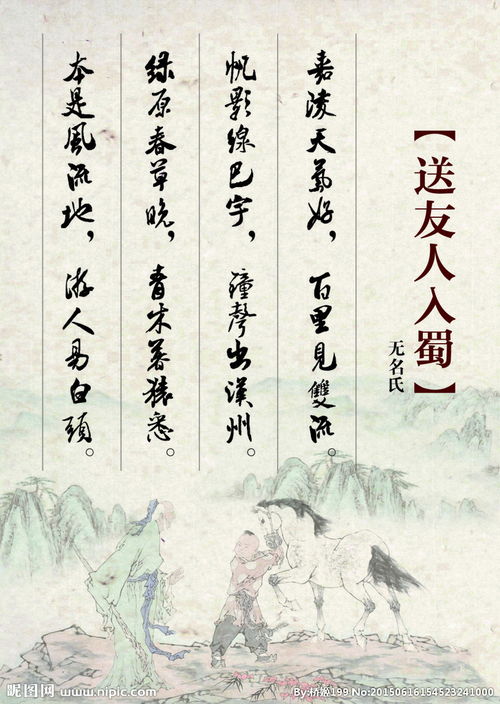 【送友人入蜀】
无名氏
嘉凌天氣好，百里見雙流。
帆影線巴字，鐘聲出漢州。
绿原春草晚，青木暮猿悉。
本是風流地，游人易白頭。
昵图网 www.nipic.com
By:桥姬199 No:20150616154523241000